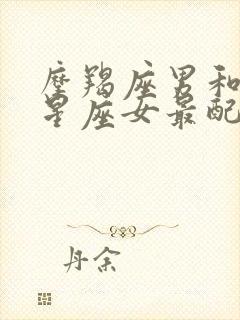 摩羯座男和
星座女最配
丹余